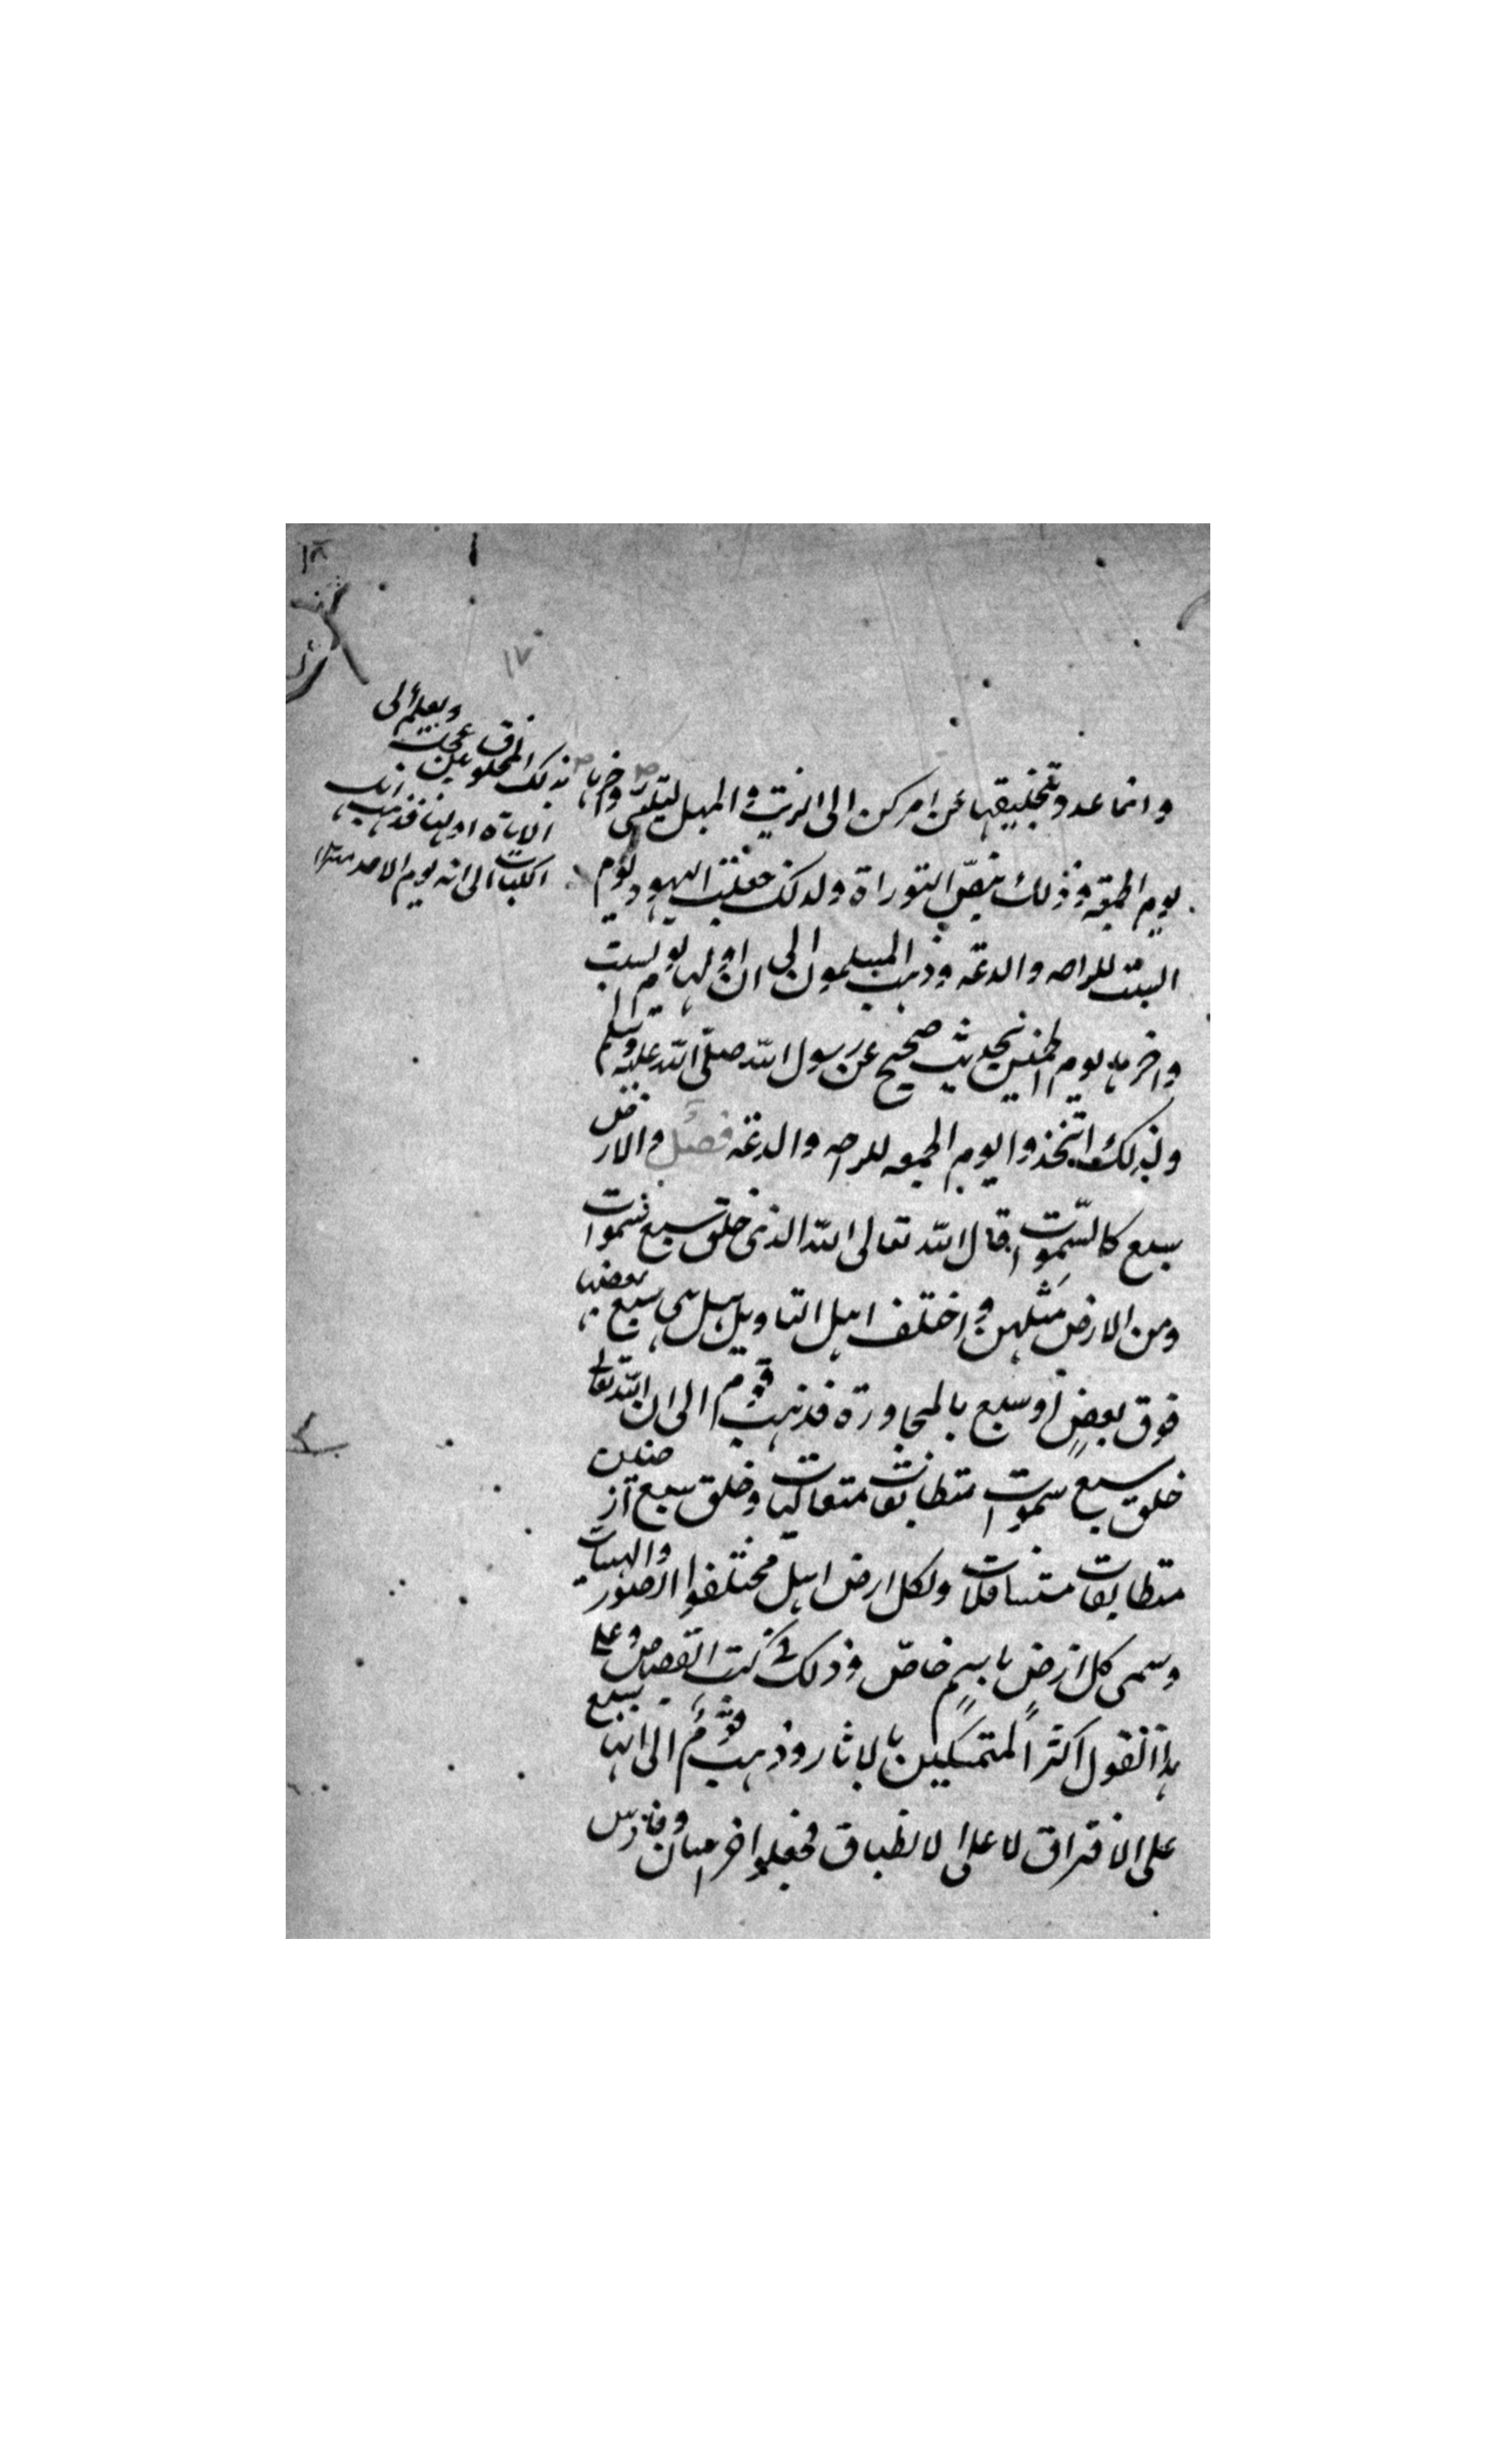 ١٨
١٧
وانما عدو تخليقها عن امر كن الى الزيث والمهل لتلقى واخرها
يوم الجمعه وذلك بنص التوراة ولذلك جعلت اليهود يوم
السبت للراحه والدعه وذهب المسلمون الى ان اولها يوم السبت
واخرها يوم الخميس بحديث صحيح عن رسول الله صلى الله عليه وسلم
ولذلك اتخذوا يوم الجمعه للراحه والدعه فصل والارض
سبع كالسموات قال الله تعالى الله الذى خلق سبع سموات
ومن الارض مثلهن واختلف اهل التاويل هل هى سبع بعضها
فوق بعض او سبع بالمجاورة فذهب قوم الى ان الله تعالى
خلق سبع سموات متطابقات متعاليات وخلق سبع ارضين
متطابقات متسافلات ولكل ارض اهل مختلفوا الصور والهيات
وسمى كل ارض باسم خاص وذلك فى كتب القصاص وعلى
هذا القول اكثر المتمسكين بالاثار وذهب قوم الى انها سبع
على الافتراق لا على الانطباق فجعلوا خراسان وفارس
ويعلم
بذلك المخلوق عن
الاناة اولها فذهب اهل
الكتاب الى انه يوم الاحد